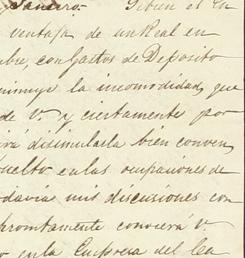 Janeiro. Si bien el
ventaja de un Real en
bre, con Gastos de Deposito
minuye la incomodidad, que
de V. y ciertamente por
rá disimularla bien conven
uelto en las ocupaciones de
odavia mis discusiones con
prontamente conocerá V.
en la Empresa del